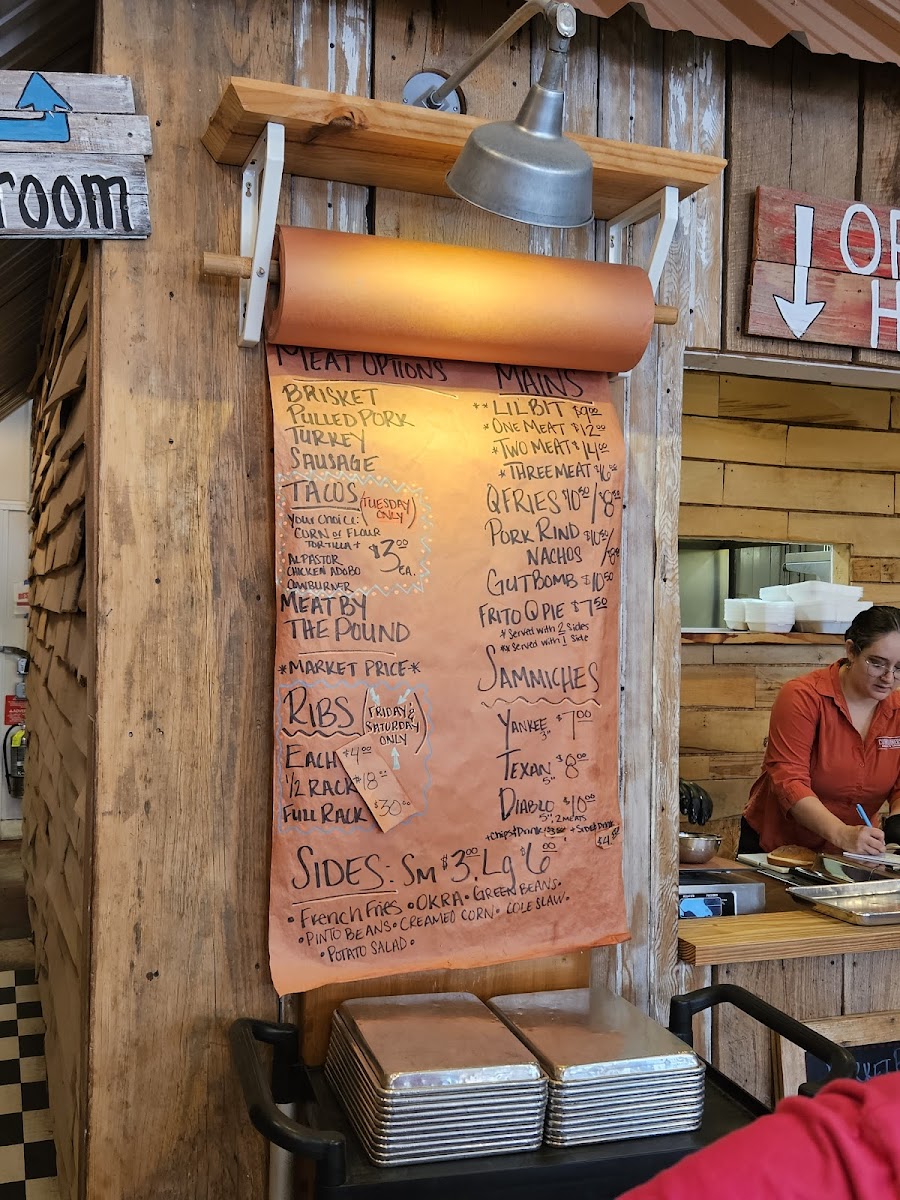 room
MEAT OPTIONS
BRISKET
PULLED PORK
TURKEY
SAUSAGE
TACOS (TUESDAY ONLY)
YOUR CHOICE:
CORN or FLOUR
TORTILLA +
$3.00 ea.
AL PASTOR
CHICKEN ADOBO
COWBURNER
MEAT BY
THE POUND
*MARKET PRICE*
RIBS (FRIDAY & SATURDAY ONLY)
EACH $4.00
1/2 RACK $18.00
FULL RACK $30.00
MAINS
** LIL BIT $9.00
* ONE MEAT $12.00
* TWO MEAT $14.00
* THREE MEAT $16.00
Q FRIES $10.50/$8.00
PORK RIND $10.50/$8.00
NACHOS
GUTBOMB $10.50
FRITO Q PIE $7.50
* Served with 2 Sides
** Served with 1 Side
SAMMICHES
YANKEE $7.00
3"
TEXAN $8.00
5"
DIABLO $10.00
5", 2 MEATS
+ Chips & Drink + Side & Drink
$4.50
SIDES: Sm $3.00, Lg $6.00
• French Fries • OKRA • GREEN BEANS •
• PINTO BEANS • CREAMED CORN • COLE SLAW •
• POTATO SALAD •
OR
H